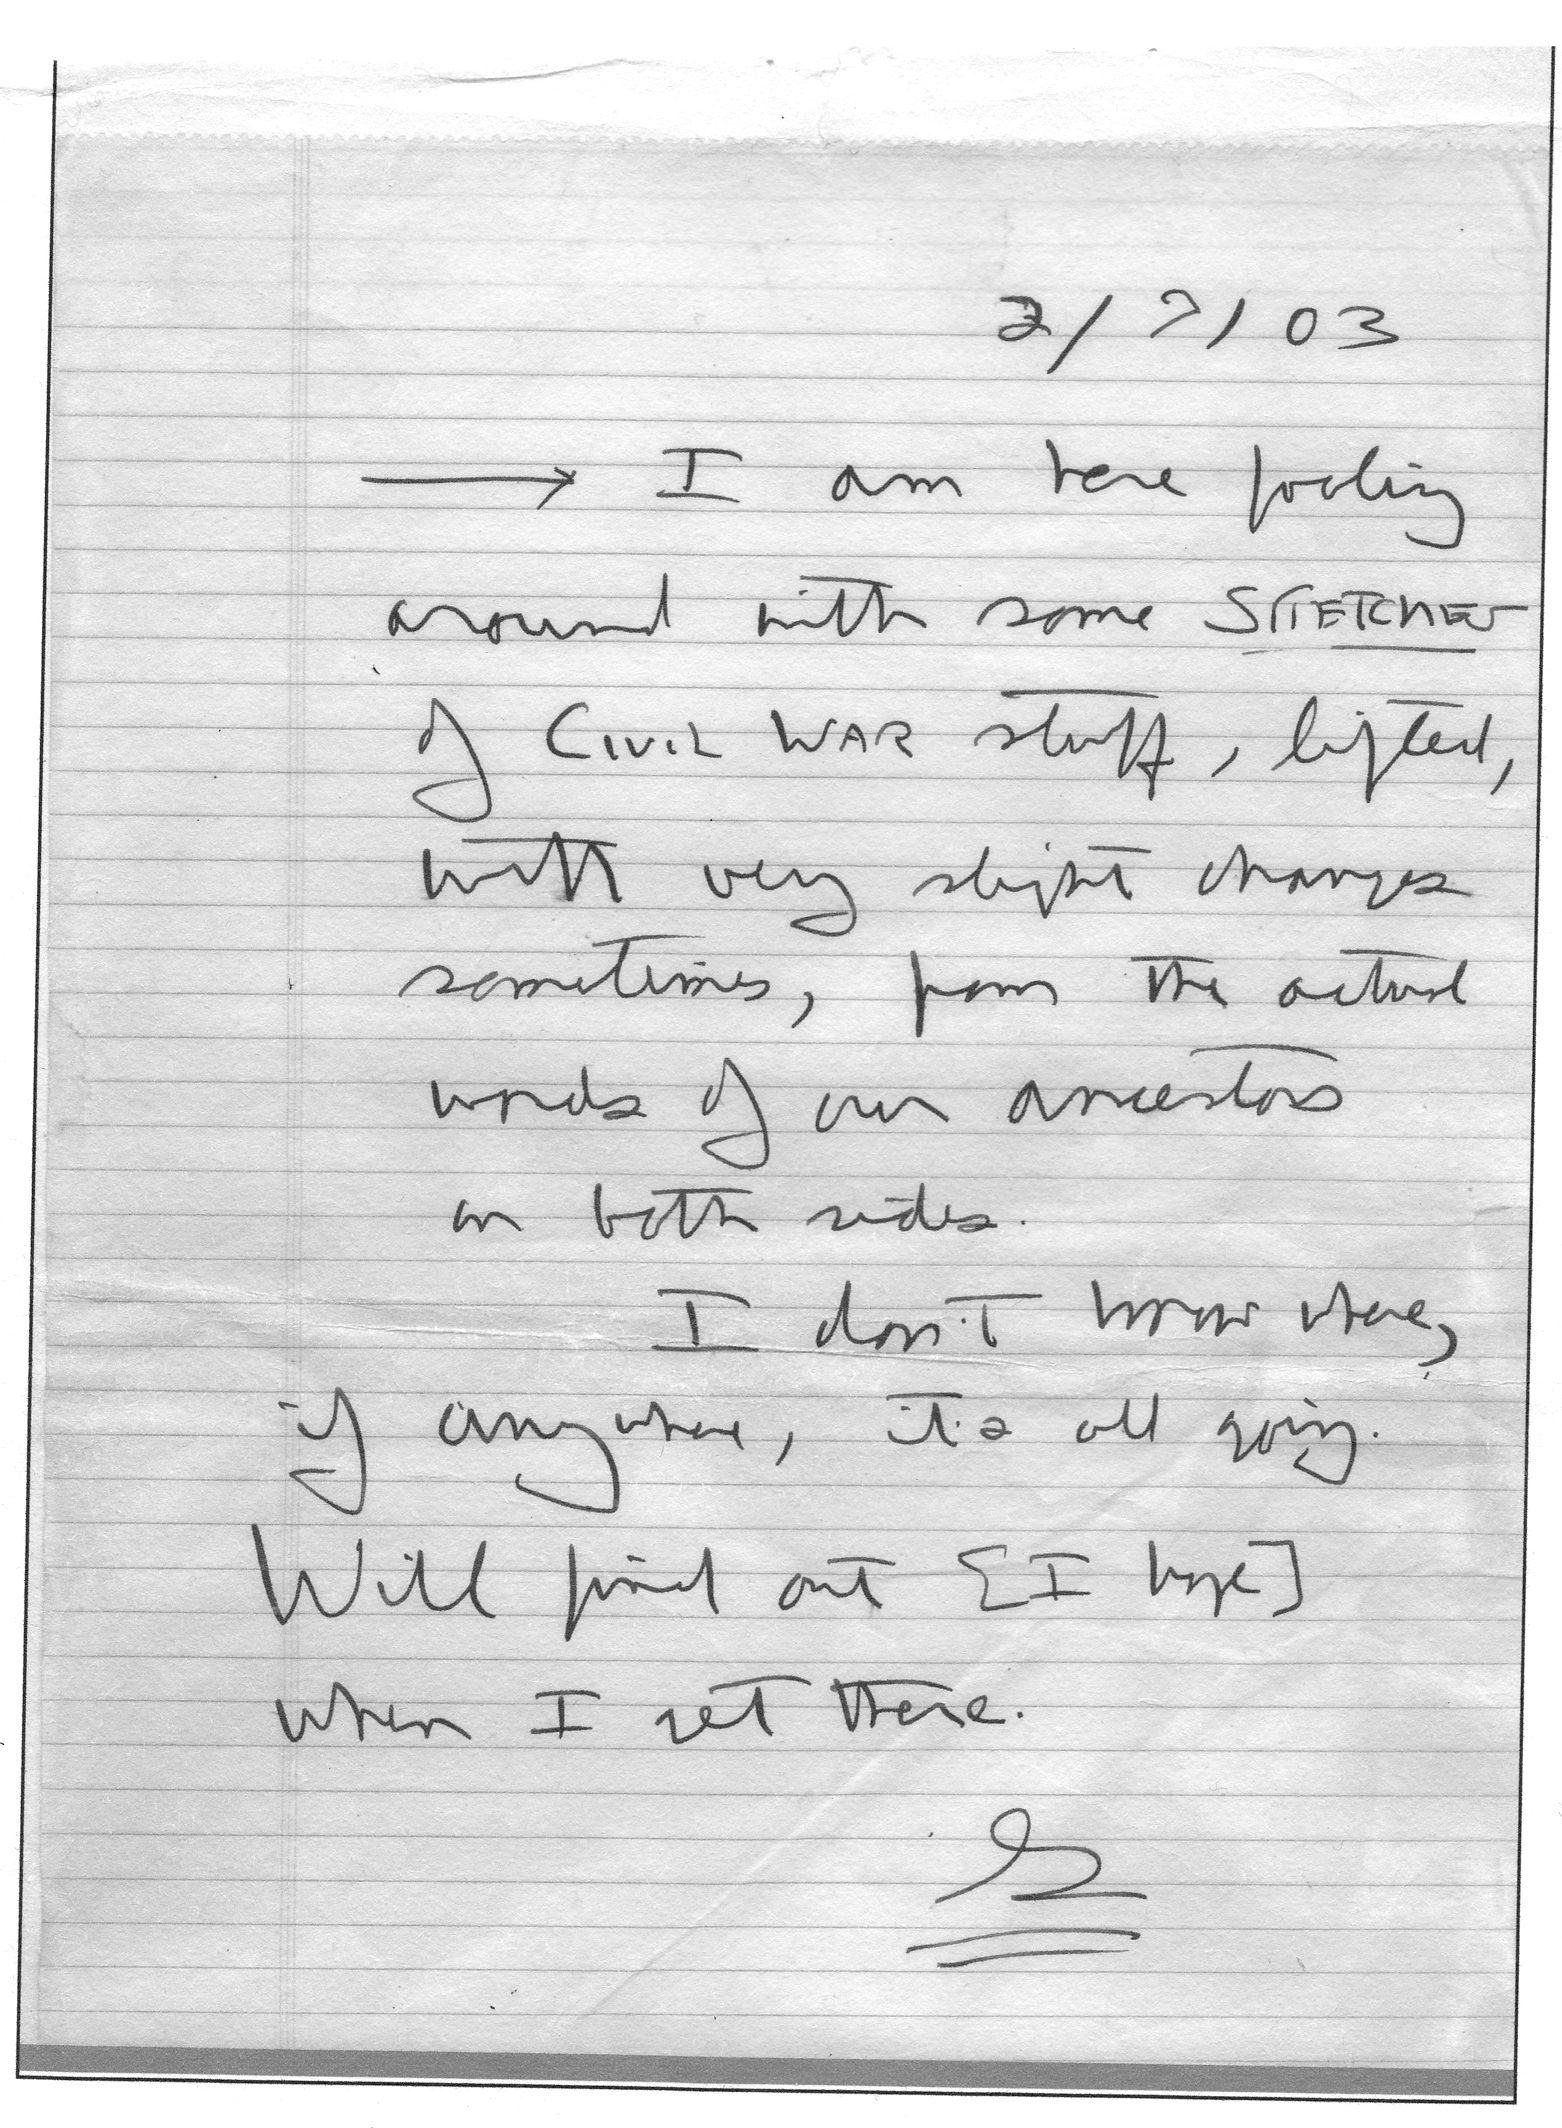 2/7/03
→ I am here fooling
around with some STRETCHES
of CIVIL WAR stuff, lifted,
with very slight changes
sometimes, from the actual
words of our ancestors
on both sides.
I don't know where,
if anywhere, it's all going.
Will find out [I hope]
when I get there.